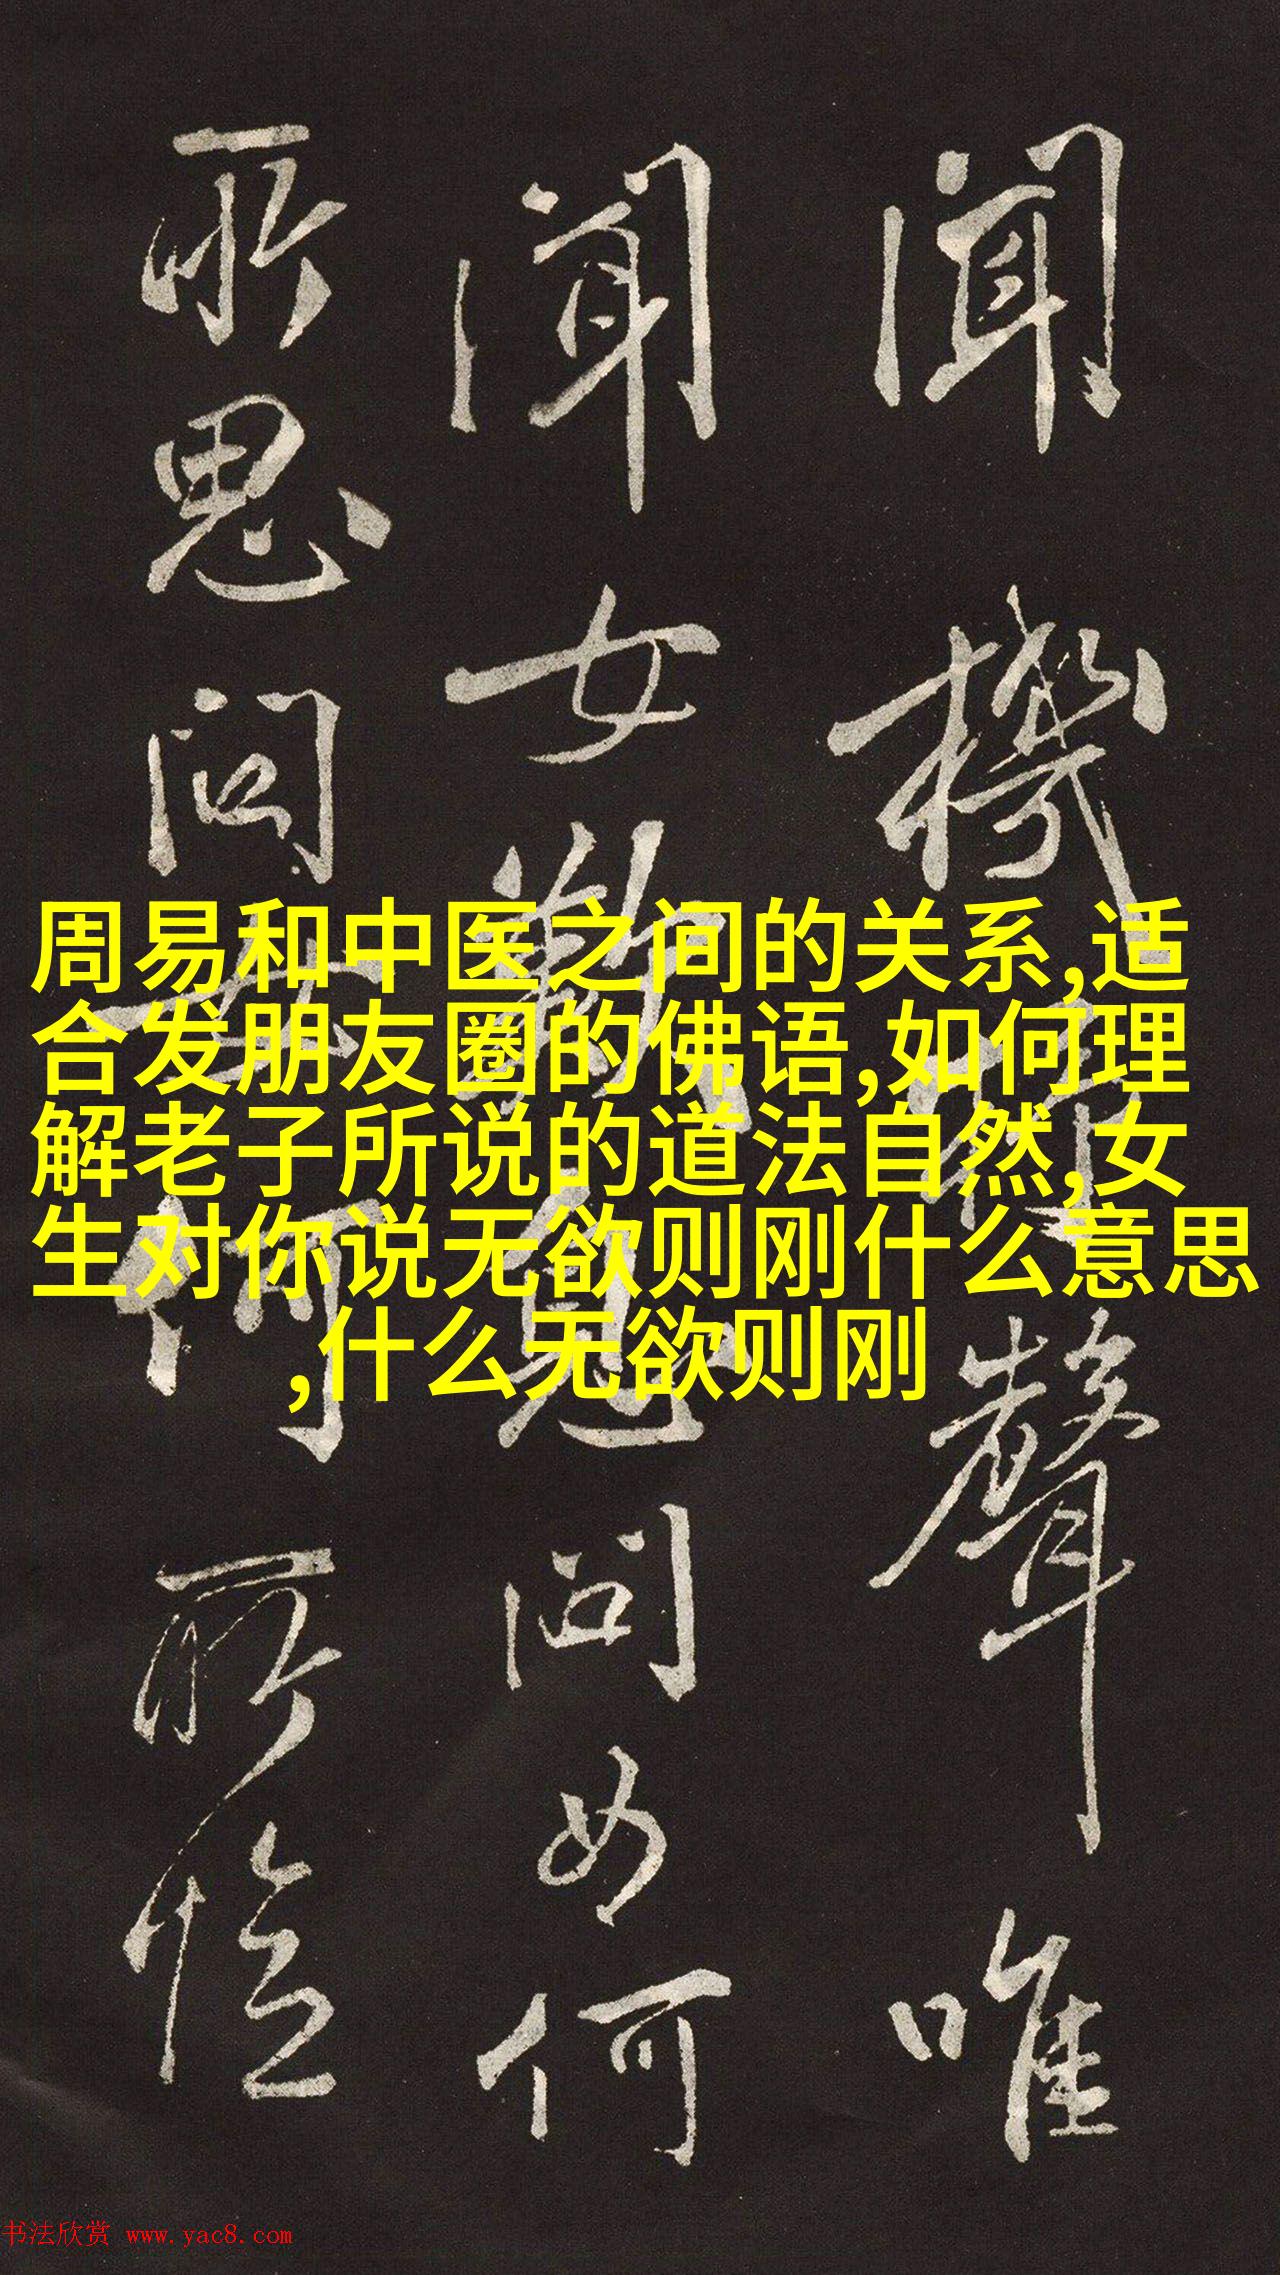 聞機杼聲唯
聞女歎息問女何
所思問女何所憶
周易和中医之间的关系,适
合发朋友圈的佛语,如何理
解老子所说的道法自然,女
生对你说无欲则刚什么意思
,什么无欲则刚
书法欣赏 www.yac8.com